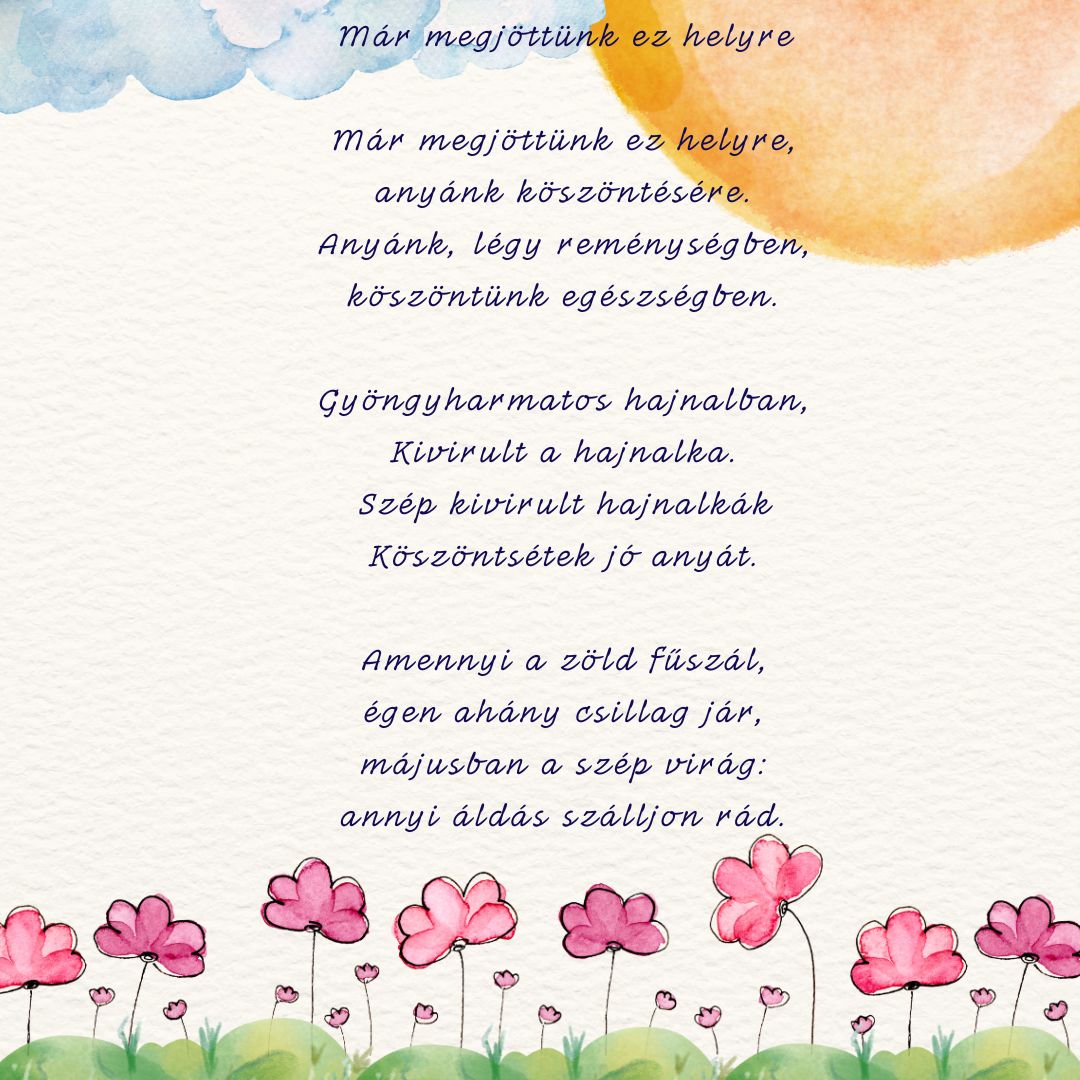 Már megjöttünk ez helyre
Már megjöttünk ez helyre,
anyánk köszöntésére.
Anyánk, légy reménységben,
köszöntünk egészségben.
Gyöngyharmatos hajnalban,
Kivirult a hajnalka.
Szép kivirult hajnalkák
Köszöntsétek jó anyát.
Amennyi a zöld fűszál,
égen ahány csillag jár,
májusban a szép virág:
annyi áldás szálljon rád.